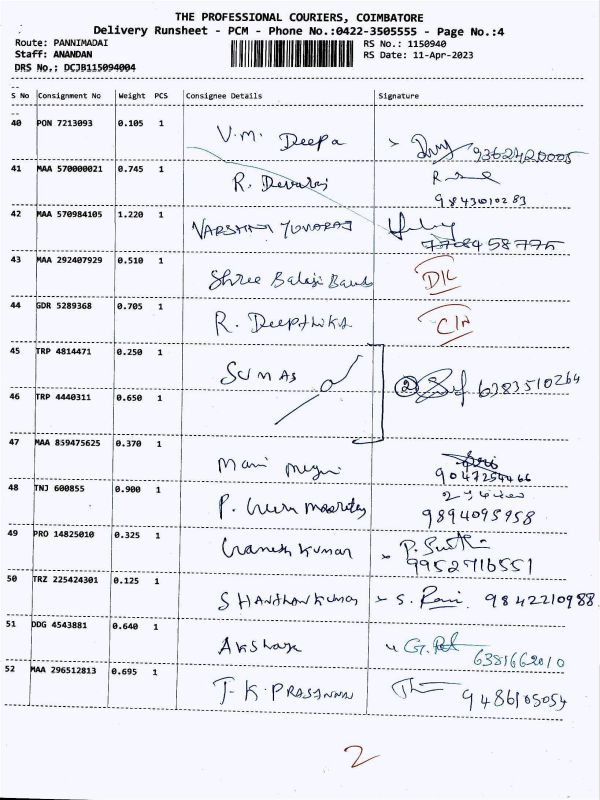 THE PROFESSIONAL COURIERS, COIMBATORE
Delivery Runsheet - PCM - Phone No.:0422-3505555 - Page No.:4
Route: PANNIMADAI RS No.: 1150940
Staff: ANANDAN RS Date: 11-Apr-2023
DRS No.: DCJB115094004
S No Consignment No Weight PCS Consignee Details Signature
40 PON 7213093 0.105 1 V.M. Deepa 9362420005
41 MAA 570000021 0.745 1 R. Devaraj
9843010283
42 MAA 570984105 1.220 1 VARSHINI YUVARAJ
7708458775
43 MAA 292407929 0.510 1 Shree Balaji D/L
44 GDR 5289368 0.705 1 R. DEEPTHIKA
45 TRP 4814471 0.250 1 SUMAS
② 6383510264
46 TRP 4440311 0.650 1
47 MAA 859475625 0.370 1 Mani
9047254466
48 TNJ 600855 0.900 1 P.
9894095958
49 PRO 14825010 0.325 1 Ganesh Kumar
9952716551
50 TRZ 225424301 0.125 1 SHANTHAN KUMAR S. Rani 9842210988
51 DDG 4543881 0.640 1 Akshaya
6381662010
52 MAA 296512813 0.695 1 T.K. PRASANNA 9486105054
2